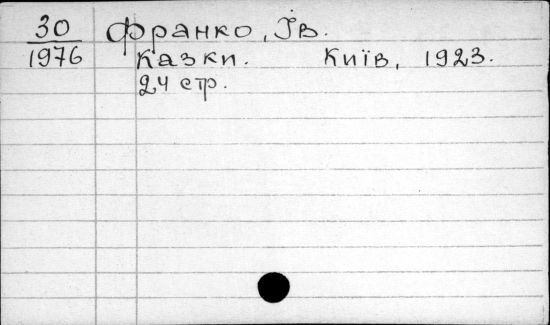 30 Франко, Ів.
1976 Казки. Київ, 1923.
24 стр.